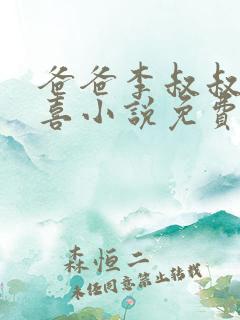 爸爸李叔叔
喜小說免費
森恒二
未经同意禁止转载